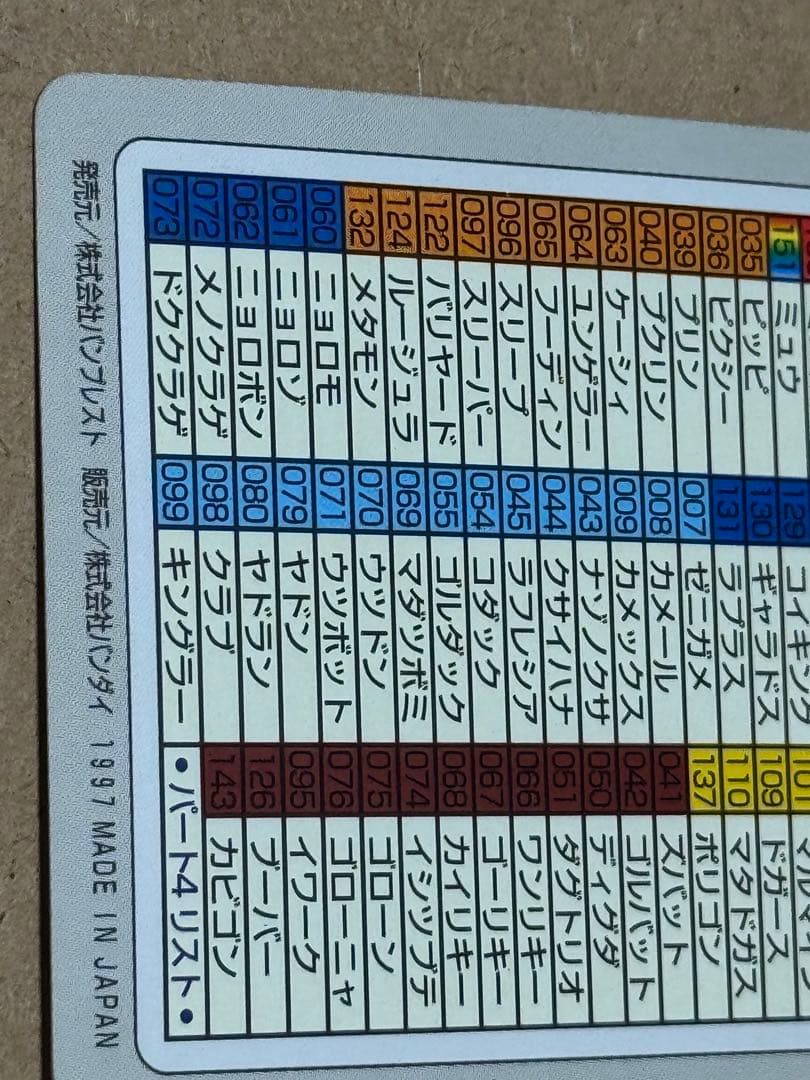 151 ミュウ 129 コイキング 101 マルマイン
035 ピッピ 130 ギャラドス 109 ドガース
036 ピクシー 131 ラプラス 110 マタドガス
039 プリン 007 ゼニガメ 137 ポリゴン
040 プクリン 008 カメール 041 ズバット
063 ケーシィ 009 カメックス 042 ゴルバット
064 ユンゲラー 043 ナゾノクサ 050 ディグダ
065 フーディン 044 クサイハナ 051 ダグトリオ
096 スリープ 045 ラフレシア 066 ワンリキー
097 スリーパー 054 コダック 067 ゴーリキー
122 バリヤード 055 ゴルダック 068 カイリキー
124 ルージュラ 069 マダツボミ 074 イシツブテ
132 メタモン 070 ウツドン 075 ゴローン
060 ニョロモ 071 ウツボット 076 ゴローニャ
061 ニョロゾ 079 ヤドン 095 イワーク
062 ニョロボン 080 ヤドラン 126 ブーバー
072 メノクラゲ 098 クラブ 143 カビゴン
073 ドククラゲ 099 キングラー •パート4リスト•
発売元／株式会社バンプレスト 販売元／株式会社バンダイ 1997 MADE IN JAPAN